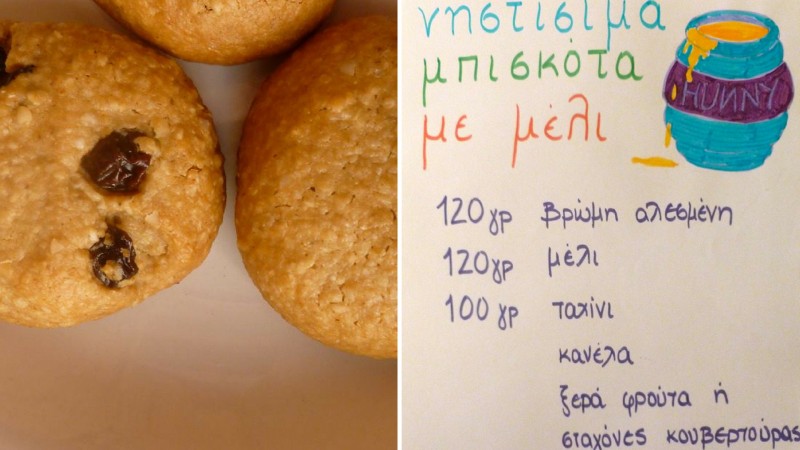 νηστίσιμα
μπισκότα
με μέλι
HUNNY
120γρ βρώμη αλεσμένη
120γρ μέλι
100γρ ταχίνι
κανέλα
ξερά φρούτα ή
σταγόνες κουβερτούρας